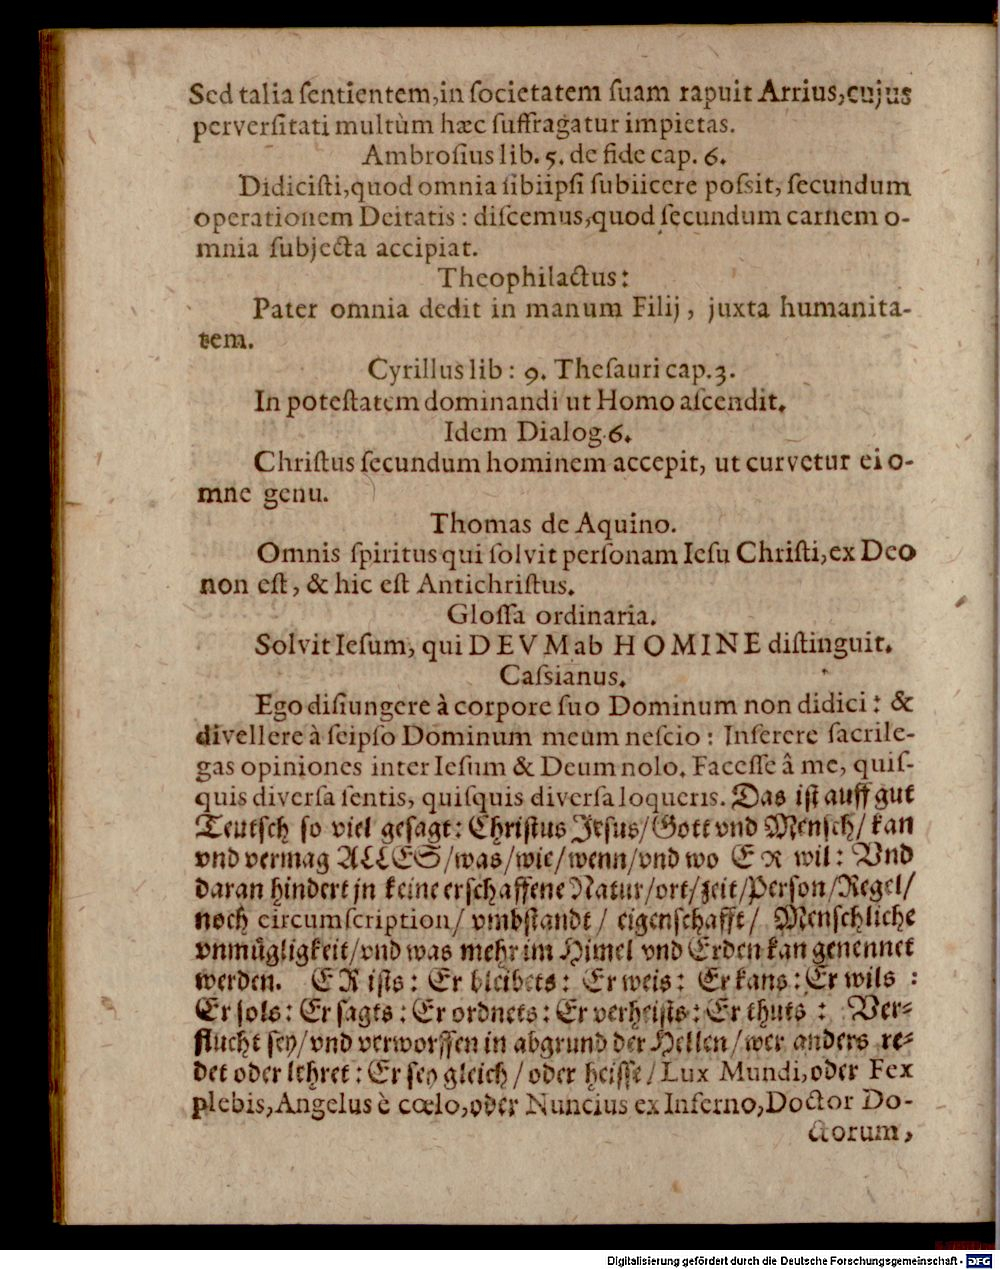 Sed talia ſentientem,in ſocietatem ſuam rapuit Arrius,cujus
perverſitati multùm hæc ſuffragatur impietas.
Ambroſius lib. 5. de fide cap. 6.
Didiciſti,quod omnia ſibiipſi ſubiicere poſsit, ſecundum
operationem Deitatis : diſcemus,quod ſecundum carnem o-
mnia ſubjecta accipiat.
Theophilactus:
Pater omnia dedit in manum Filij , juxta humanita-
tem.
Cyrillus lib : 9. Theſauri cap.3.
In poteſtatem dominandi ut Homo aſcendit.
Idem Dialog.6.
Chriſtus ſecundum hominem accepit, ut curvetur ei o-
mne genu.
Thomas de Aquino.
Omnis ſpiritus qui ſolvit perſonam Ieſu Chriſti,ex Deo
non eſt, & hic eſt Antichriſtus.
Gloſſa ordinaria.
Solvit Ieſum, qui DEVM ab HOMINE diſtinguit.
Caſsianus.
Ego diſiungere à corpore ſuo Dominum non didici : &
divellere à ſeipſo Dominum meum neſcio : Inſerere ſacrile-
gas opiniones inter Ieſum & Deum nolo. Faceſſe â me, quiſ-
quis diverſa ſentis, quiſquis diverſa loqueris. Das iſt auff gut
Teutſch ſo viel geſagt: Chriſtus Jeſus/Gott vnd Menſch/ kan
vnd vermag ALLES/was/wie/wenn/vnd wo ER wil: Vnd
daran hindert jn keine erſchaffene Natur/ort/zeit/Perſon/Regel/
noch circumſcription/ vmbſtandt/ eigenſchafft/ Menſchliche
vnmügligkeit/vnd was mehr im Himel vnd Erden kan genennet
werden. ER iſts: Er bleibets: Er weis: Er kans: Er wils :
Er ſols: Er ſagts: Er ordnets: Er verheiſts: Er thuts : Ver-
flucht ſey/vnd verworffen in abgrund der Hellen/wer anders re-
det oder lehret: Er ſey gleich/oder heiſſe/Lux Mundi,oder Fex
plebis,Angelus è cœlo,oder Nuncius ex Inferno,Doctor Do-
ctorum,
Digitalisierung gefördert durch die Deutsche Forschungsgemeinschaft - DFG